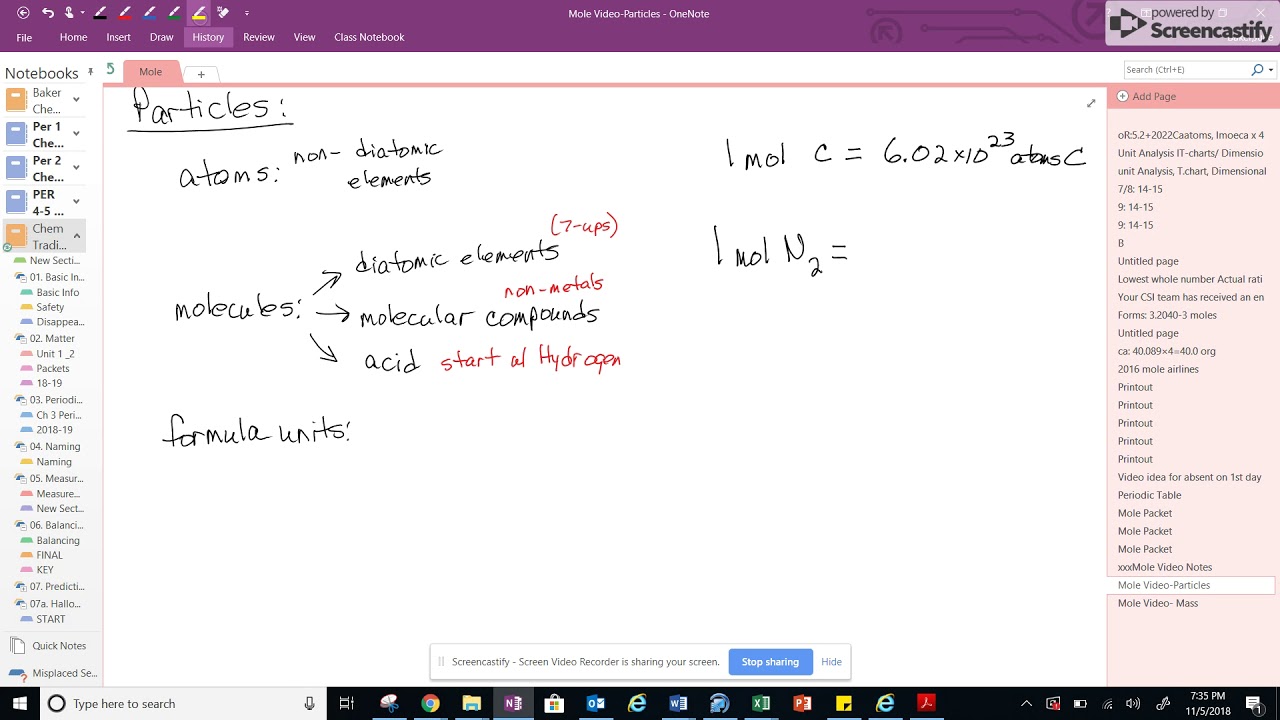 Mole Video-Particles - OneNote
powered by
Screencastify
File Home Insert Draw History Review View Class Notebook
Notebooks
Mole
Search (Ctrl+E)
Baker
Che...
Per 1
Che...
Per 2
Che...
PER
4-5 ...
Chem
Tradi...
New Secti...
01. Basic In...
Basic Info
Safety
Disappea...
02. Matter
Unit 1 _2
Packets
18-19
03. Periodi...
Ch 3 Peri...
2018-19
04. Naming
Naming
05. Measur...
Measure...
New Sect...
06. Balanci...
Balancing
FINAL
KEY
07. Predicti...
07a. Hallo...
START
Quick Notes
Misplaced Se...
Particles:
atoms: non-diatomic
elements
(7-ups)
diatomic elements
non-metals
molecules: molecular compounds
acid start w/ Hydrogen
formula units:
1 mol C = 6.02×10²³ atoms C
1 mol N₂ =
Add Page
oR:5.2+2022Caatoms, Imoeca x 4
Unit Analysis IT-charts/ Dimensio
unit Analysis, T.chart, Dimensional
7/8: 14-15
9: 14-15
9: 14-15
B
Untitled page
Lowest whole number Actual rati
Your CSI team has received an en
Forms: 3.2040-3 moles
Untitled page
ca: 40.089×4=40.0 org
2016 mole airlines
Printout
Printout
Printout
Printout
Printout
Video idea for absent on 1st day
Periodic Table
Mole Packet
Mole Packet
Mole Packet
xxxMole Video Notes
Mole Video-Particles
Mole Video- Mass
Screencastify - Screen Video Recorder is sharing your screen. Stop sharing Hide
Type here to search
7:35 PM
11/5/2018